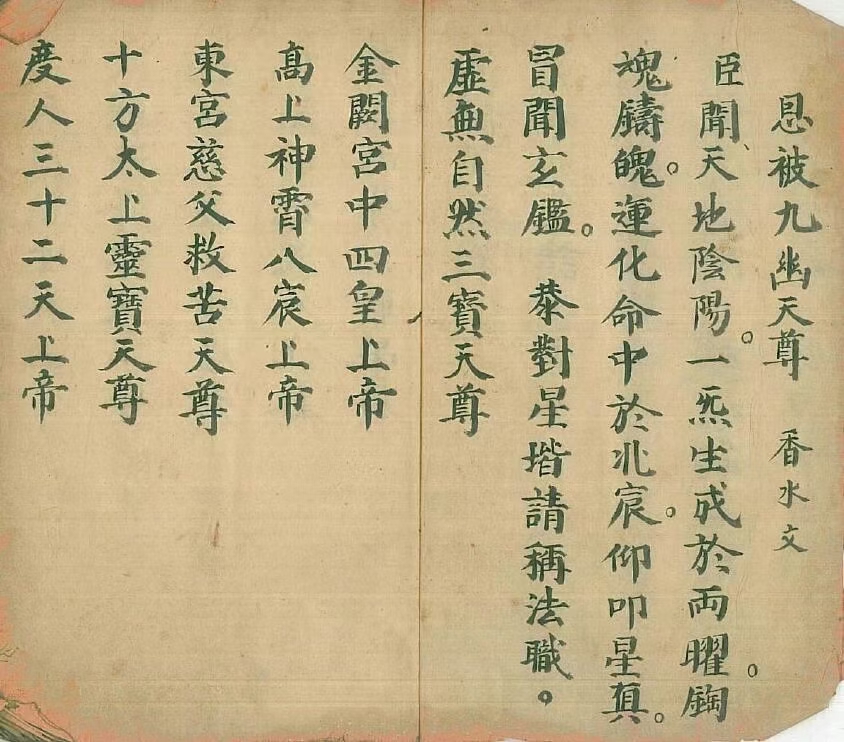 恩被九幽天尊　香水文
臣聞天地陰陽。一炁生成於兩曜。鋼
魂鑄魄。運化命中於北宸。仰叩星真。
冒聞玄鑑。恭對星堦請稱法職。
虛無自然三寶天尊
金闕宮中四皇上帝
高上神霄八宸上帝
東宮慈父救苦天尊
十方太上靈寶天尊
度人三十二天上帝